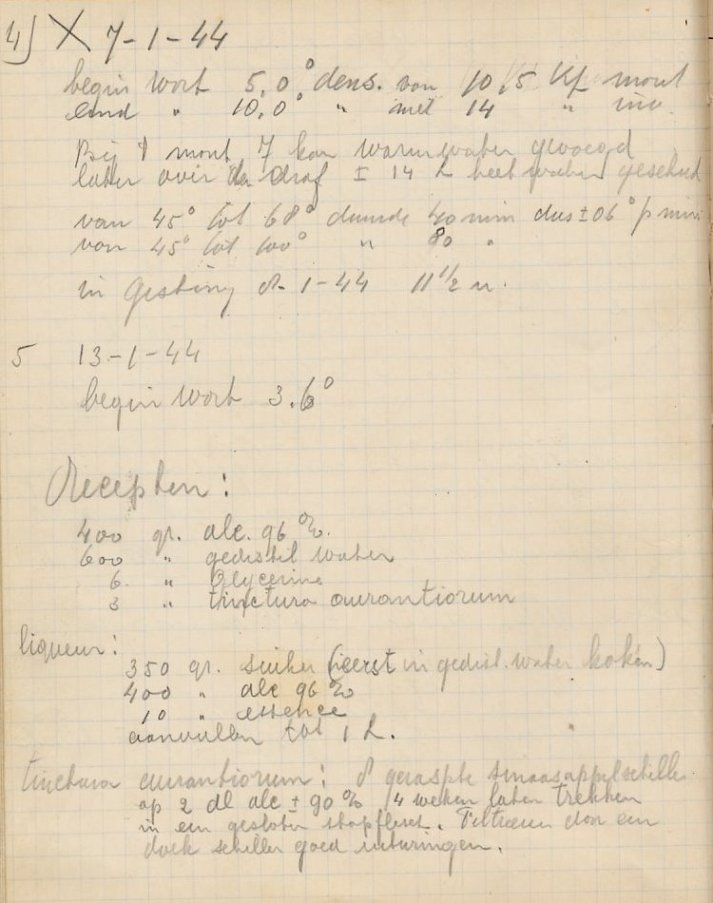 4) X 7-1-44
begin wort 5,0° dens. van 10,5 Kg mout
eind " 10,0° " met 14 "
Bij 't mout 7 kan warmwater gevoegd
later over de draf ± 14 L heet water geschud
van 45° tot 68° duurde 40 min dus ± 06° p min
van 45° tot 100° " 80 "
in gisting 8-1-44 11 1/2 u.
5 13-1-44
begin wort 3.6°
Recepten:
400 gr. alc. 96 %.
600 " gedistil water
6 " Glycerine
3 " tinctura aurantiorum
liqueur:
350 gr. suiker (eerst in gedist. water koken)
400 " alc 96 %
10 " essence
aanvullen tot 1 L.
tinctura aurantiorum: 8 geraspte sinaasappelschillen
op 2 dl alc ± 90 % 14 weken laten trekken
in een gesloten stopflesch. Filtreeren door een
doek schillen goed uitwringen.